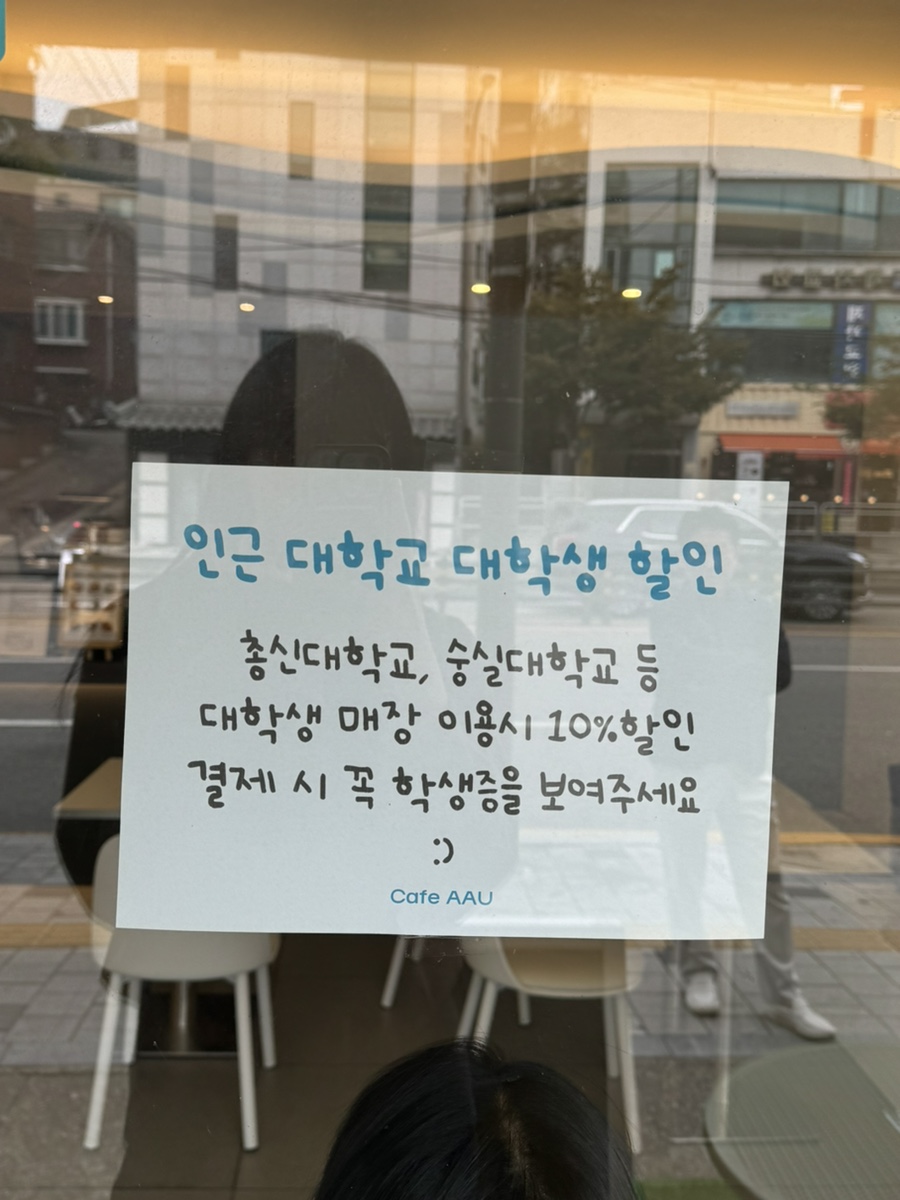 인근 대학교 대학생 할인
총신대학교, 숭실대학교 등
대학생 매장 이용시 10%할인
결제 시 꼭 학생증을 보여주세요
:)
Cafe AAU